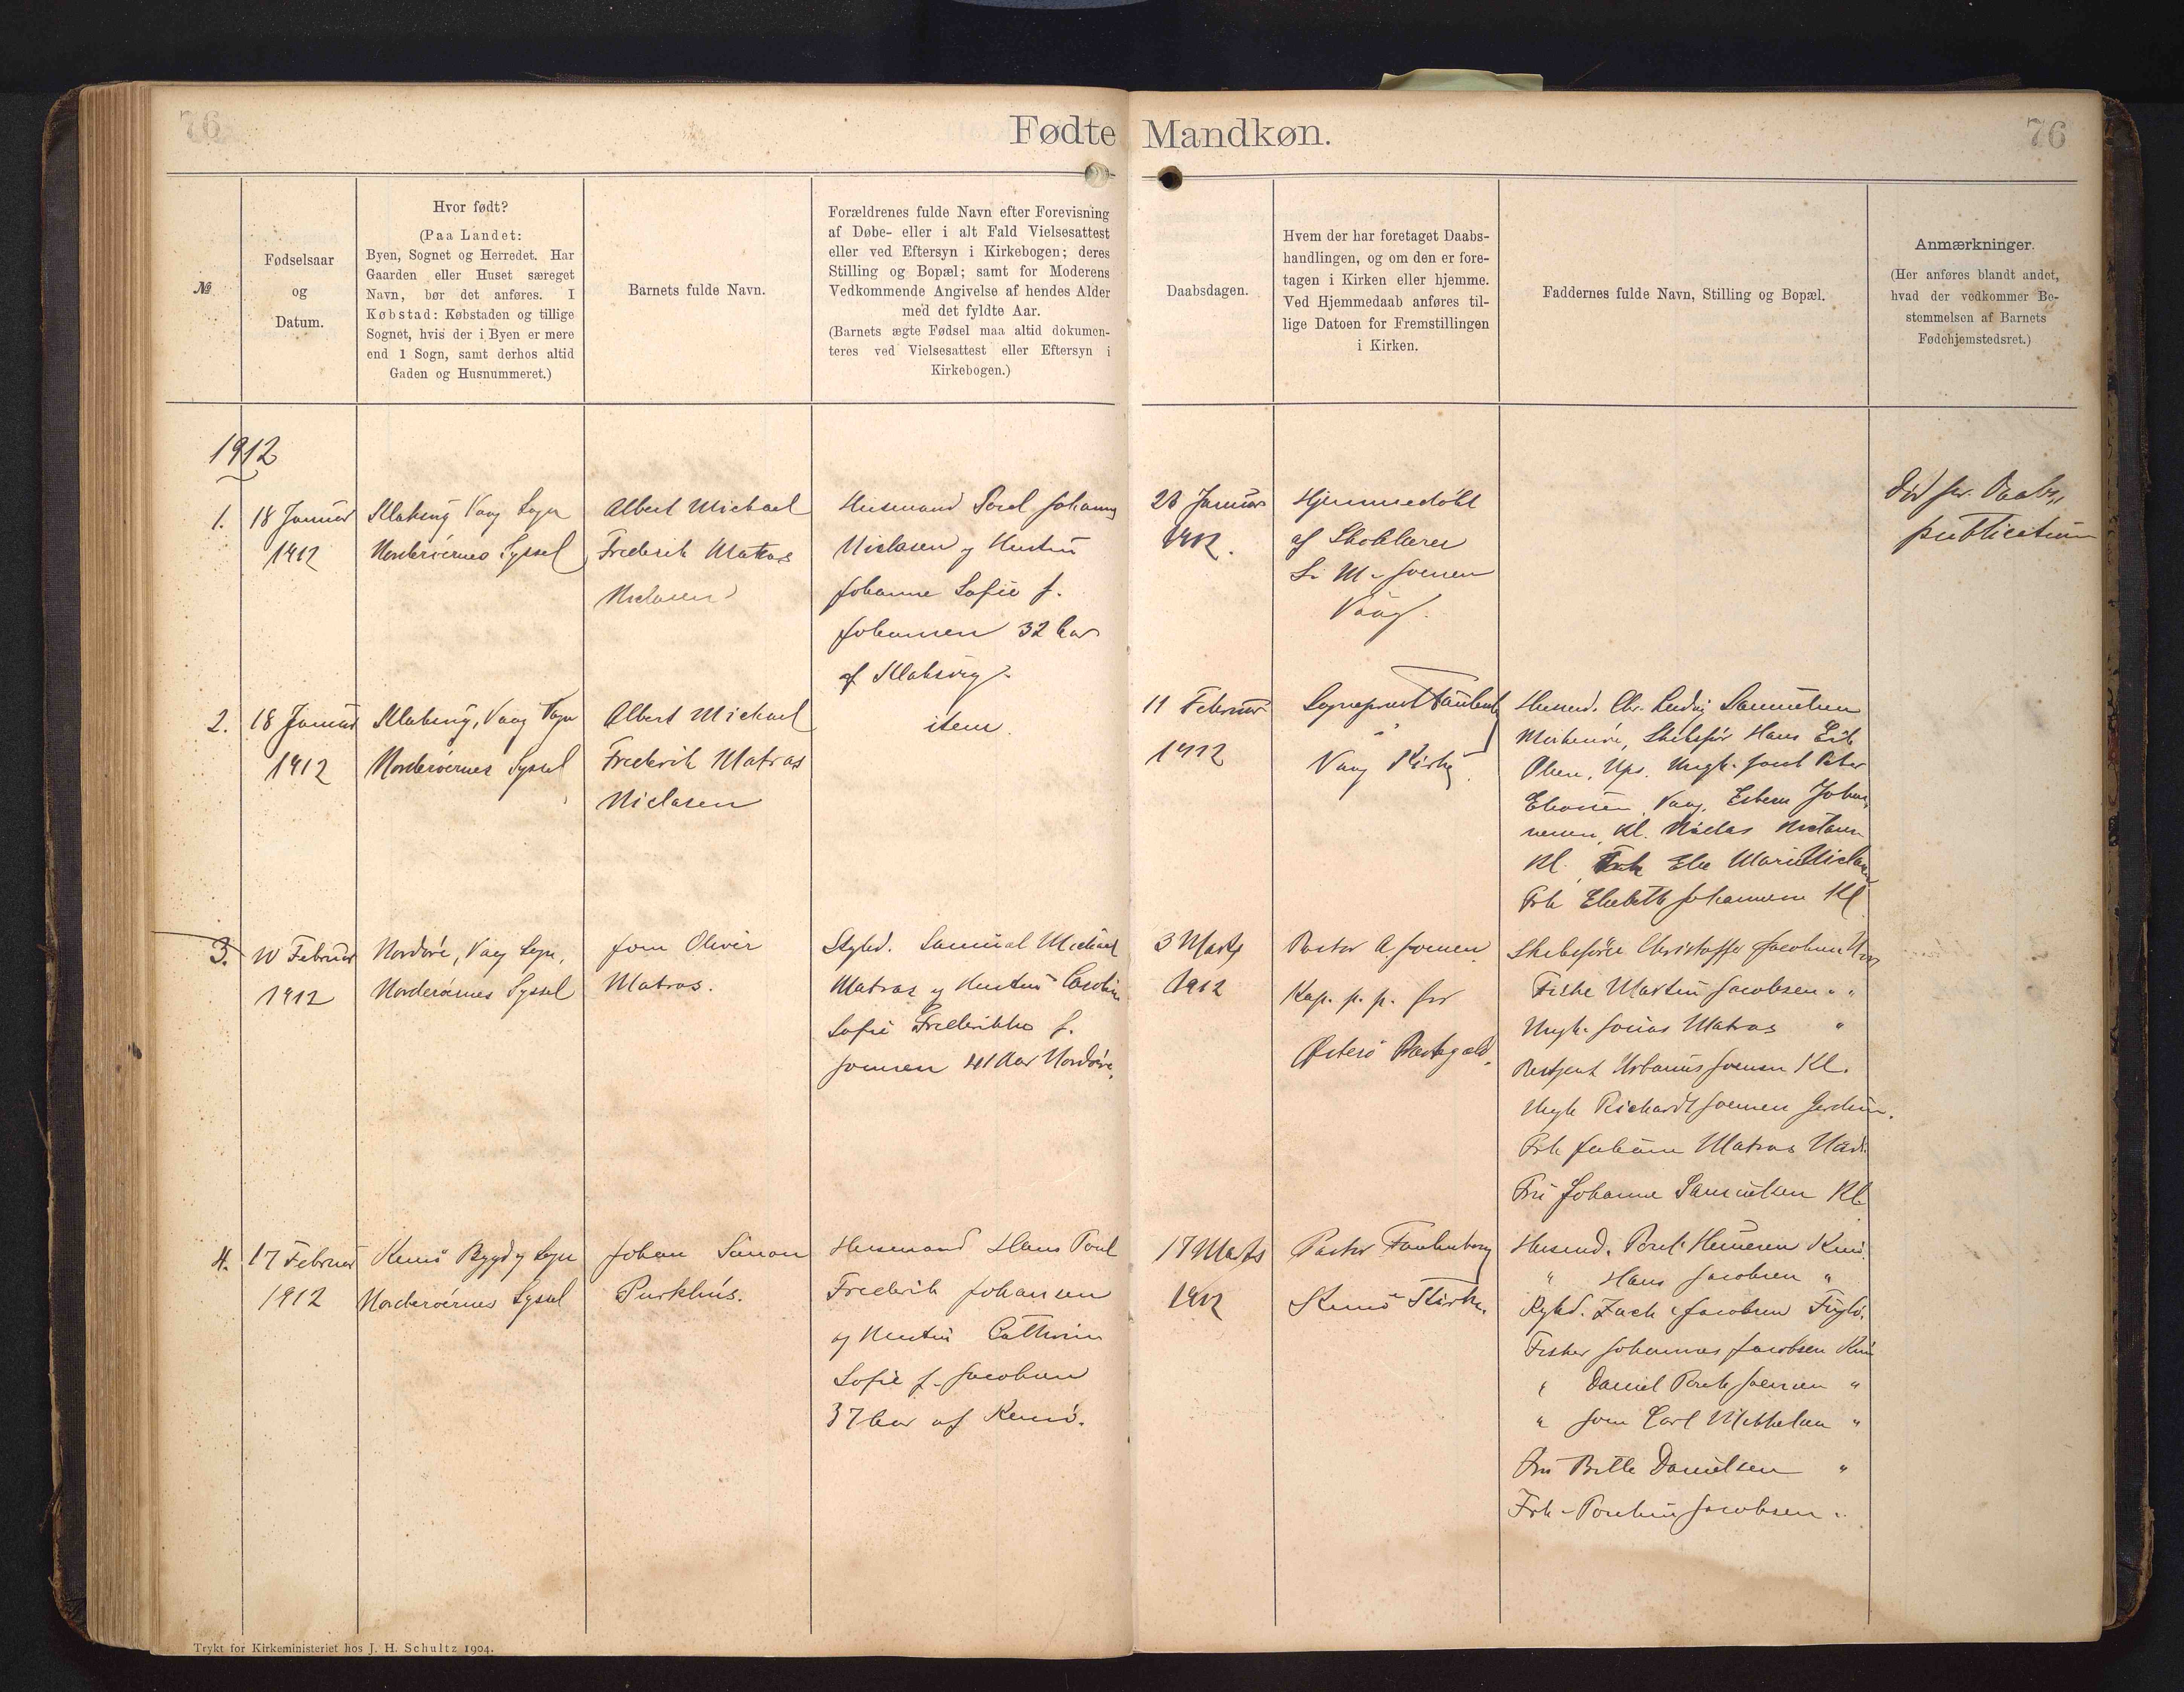 76
Fødte Mandkøn.
76
№
Fødselsaar
og
Datum.
Hvor født?
(Paa Landet:
Byen, Sognet og Herredet. Har
Gaarden eller Huset særeget
Navn, bør det anføres. I
Købstad: Købstaden og tillige
Sognet, hvis der i Byen er mere
end 1 Sogn, samt derhos altid
Gaden og Husnummeret.)
Barnets fulde Navn.
Forældrenes fulde Navn efter Forevisning
af Døbe- eller i alt Fald Vielsesattest
eller ved Eftersyn i Kirkebogen; deres
Stilling og Bopæl; samt for Moderens
Vedkommende Angivelse af hendes Alder
med det fyldte Aar.
(Barnets ægte Fødsel maa altid dokumen-
teres ved Vielsesattest eller Eftersyn i
Kirkebogen.)
Daabsdagen.
Hvem der har foretaget Daabs-
handlingen, og om den er fore-
tagen i Kirken eller hjemme.
Ved Hjemmedaab anføres til-
lige Datoen for Fremstillingen
i Kirken.
Faddernes fulde Navn, Stilling og Bopæl.
Anmærkninger.
(Her anføres blandt andet,
hvad der vedkommer Be-
stemmelsen af Barnets
Fødehjemstedsret.)
1912
1.
18 Januar
1912
Klaksvig Vaag Sogn
Norderøernes Syssel
Albert Michael
Frederik Matras
Niclasen
Husmand Poul Johannes
Niclasen og Hustru
Johanne Sofie f.
Johannesen 32 Aar
af Klaksvig.
Januar
1912.
Hjemmedøbt
af Skolelærer
S. M. Joensen
Vaag.
publicatum
2.
18 Januar
1912
Klaksvig, Vaag Sogn
Norderøernes Syssel
Albert Michael
Frederik Matras
Niclasen
item.
11 Februar
1912
Sogneprest
Vaag Kirke.
Husmd. Chr. Ludvig Samuelsen
Skibsfør Hans Erik
Olsen, Ungk. Peter
Vaag,
Kl. Niclas Niclasen
Kl. Else Marie Niclasen
Frk Elsebeth Johannesen Kl
3.
10 Februar
1912
Nordøre, Vaag Sogn,
Norderøernes Syssel
Joen Oliver
Matras.
Samuel Michael
Matras og Hustru Caroline
Sofie Frederikke f.
Joensen 41 Aar Nordøre.
3 Marts
1912
Pastor A. Joensen
Kap. p. p. for
Østerø Prestegæld.
Skibsfører Christoffer Jacobsen
Fisker Martin Jacobsen " "
Ungk. Jonas Matras "
Urbanus Joensen Kl.
Ungk Richardt Joensen
Frk Matras
Fru Johanne Samuelsen Kl
4.
17 Februar
1912
Kunø Bygd og Sogn
Norderøernes Syssel
Johan Simon
Purkhús.
Husmand Hans Poul
Frederik Johansen
og Hustru Cathrine
Sofie f. Jacobsen
37 Aar af Kunø.
17 Marts
1912
Pastor
Kunø Kirke.
Husmd. Kunø
" Hans Jacobsen "
Zach. Jacobsen Fuglø.
Fisker Johannes Jacobsen Kunø
" Daniel Joensen "
" Joen Carl Mikkelsen "
Fru Danielsen "
Frk. Jacobsen "
Trykt for Kirkeministeriet hos J. H. Schultz 1904.